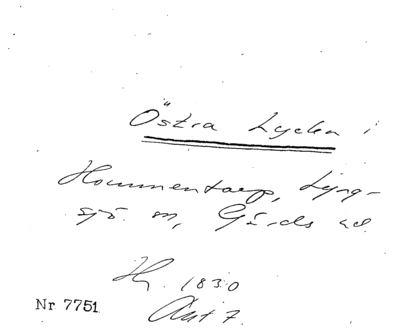 Östra Lyckan i
Hommentorp, Lyng-
sjö sn, Gärds hd.
Hg. 1830
Akt 7.
Nr 7751